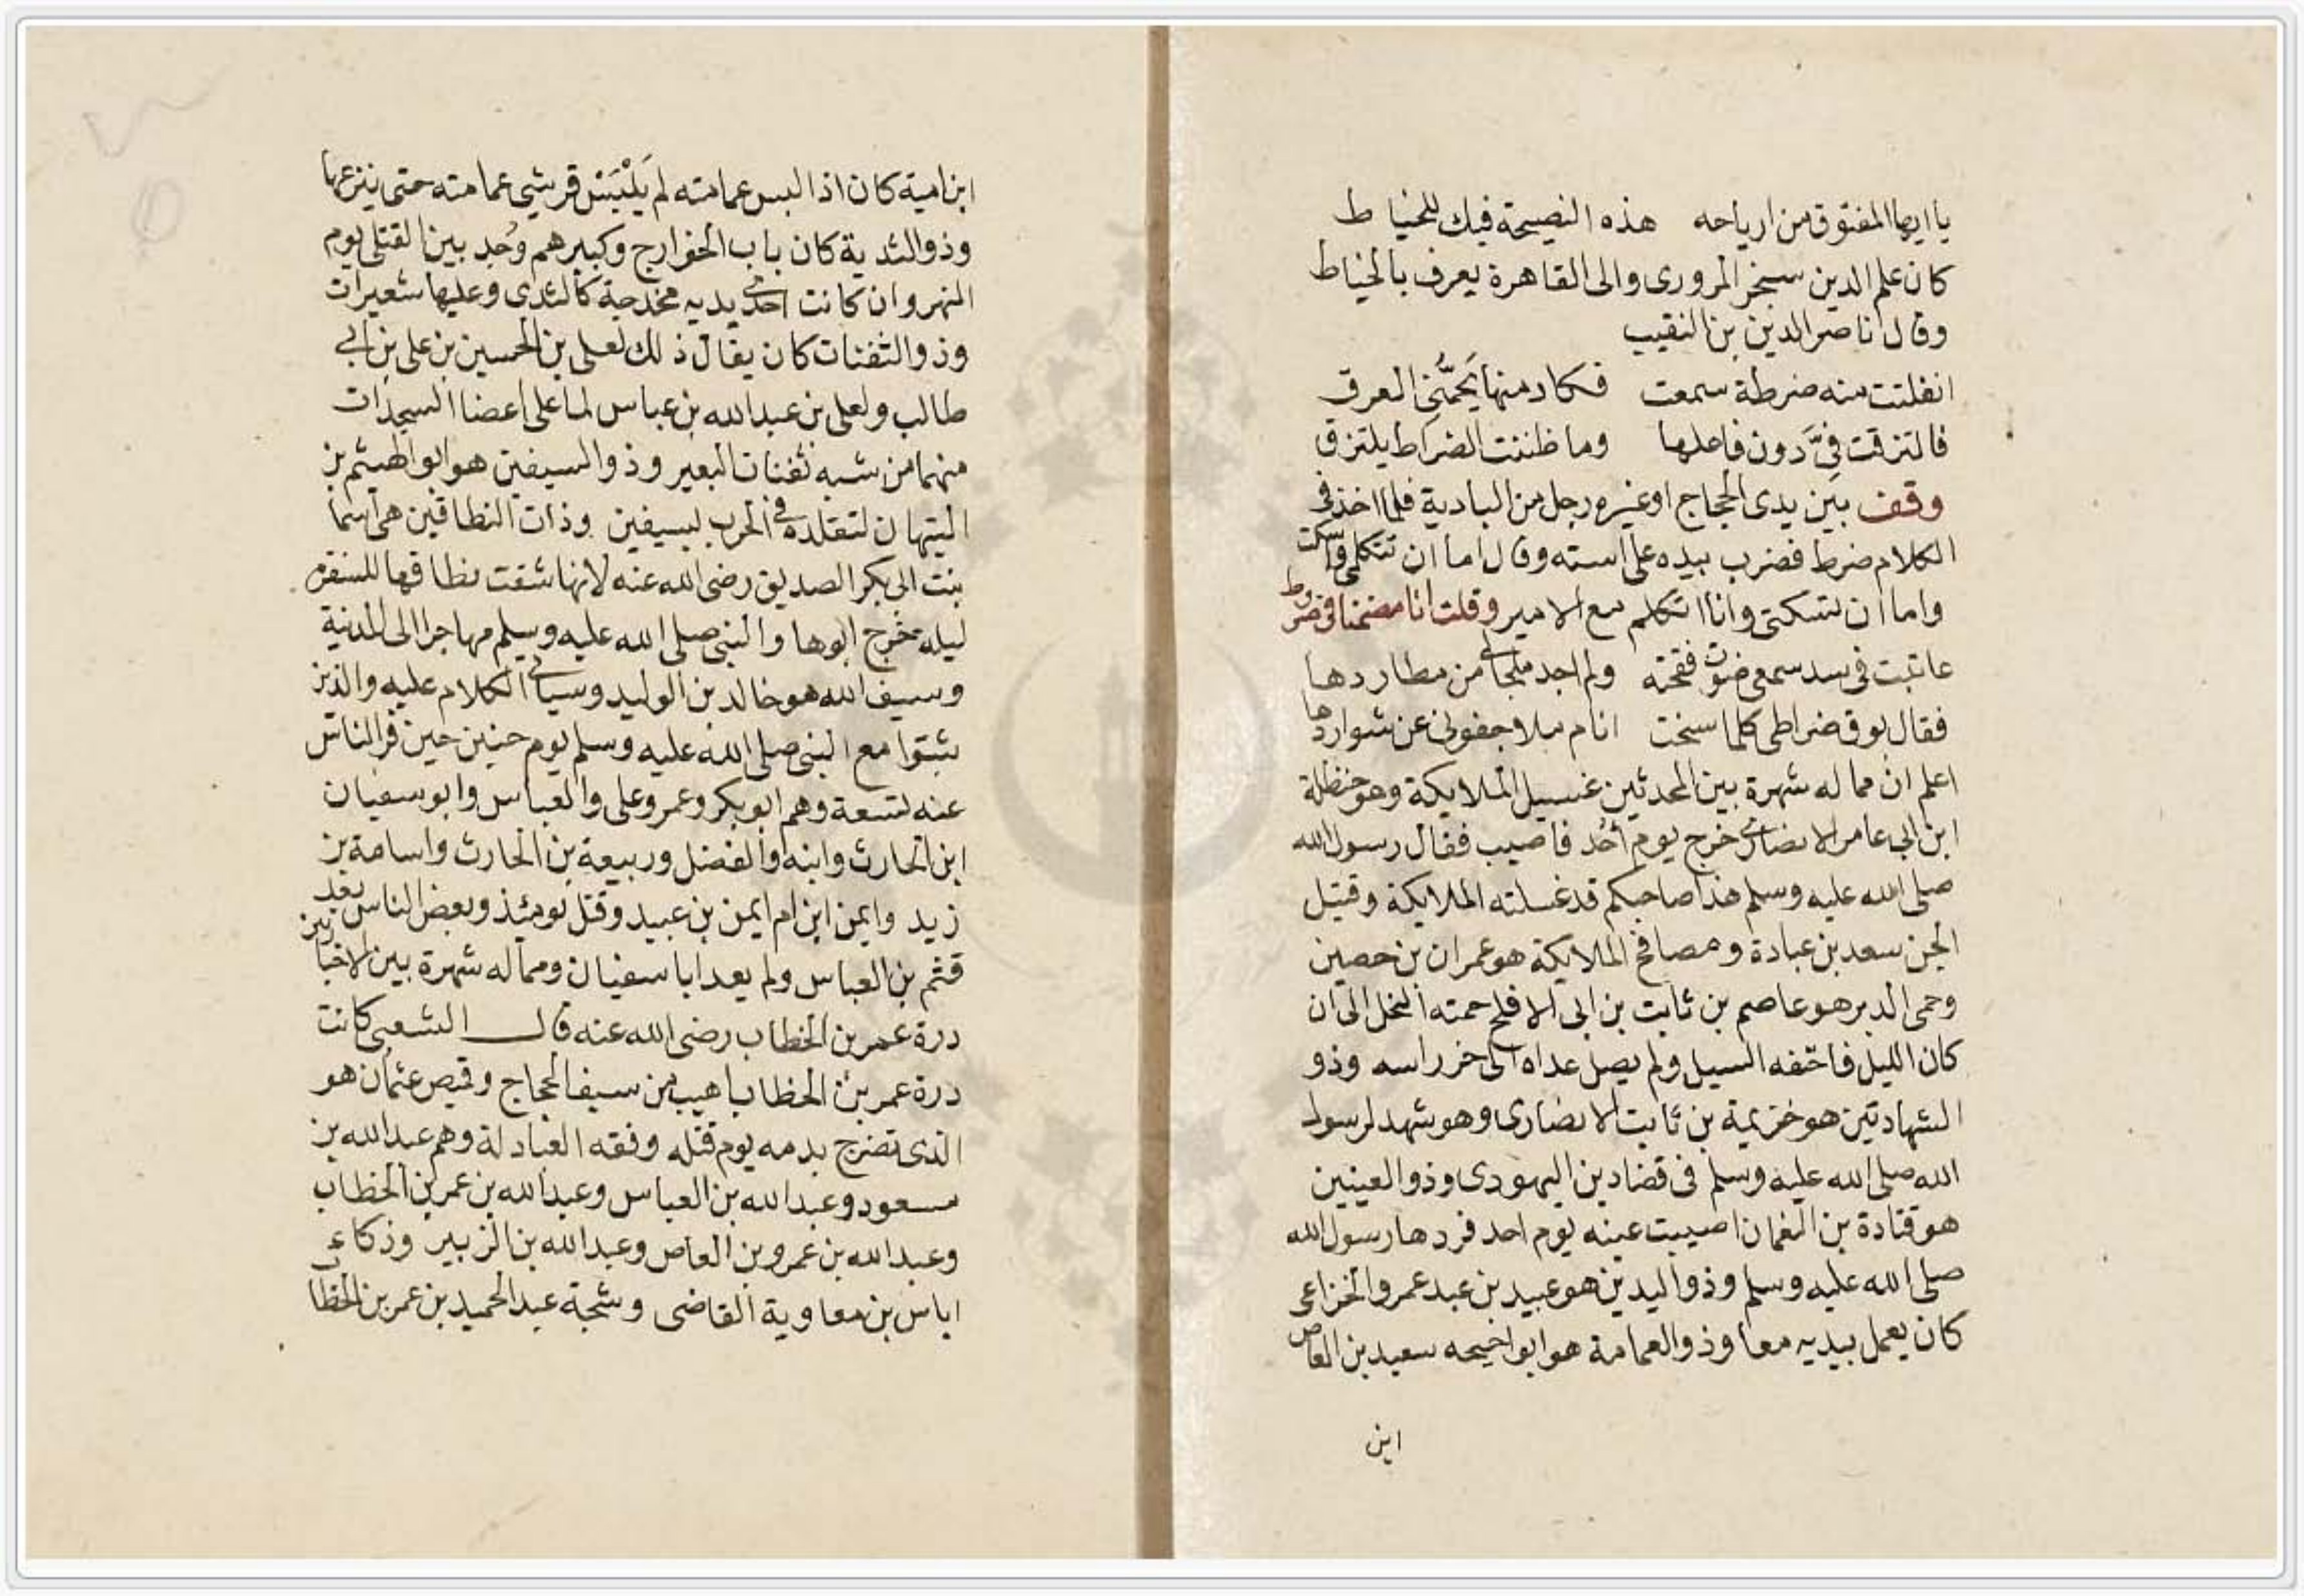 يا ايها المفتوق من ارياحه هذه النصيحة فيك للخياط
كان علم الدين سنجر المرورى والى القاهرة يعرف بالخياط
وقال ناصر الدين بن النقيب
انفلتت منه ضرطة سمعت فكاد منها العرق
فالتزقت فيَّ دون فاعلها وما ظننت الضراط يلتزق
وقف بين يدى الحجاج او غيره رجل من البادية فلما اخذ فى
الكلام ضرط فضرب بيده على استه وقال اما ان تتكلمى واسكت
واما ان تسكتى وانا اتكلم مع الامير وقلت انا مضمنا فى ضروط
عاتبت فى سد سمعى صوت فقحته ولم اجد ملجأ من مطاردها
فقال بوق ضراطى كلما سنحت انام ملا جفونى عن شواردها
اعلم ان مما له شهرة بين المحدثين غسيل الملايكة وهو حنظلة
ابن ابى عامر الانصارى خرج يوم أحُد فاصيب فقال رسول الله
صلى الله عليه وسلم هذا صاحبكم قد غسلته الملايكة وقتيل
الجن سعد بن عبادة ومصافح الملايكة هو عمران بن حصين
وحمى الدبر هو عاصم بن ثابت بن ابى الافلح حمته النحل الى ان
كان الليل فاحتفه السيل ولم يصل عداه الى حز راسه وذو
الشهادتين هو خزيمة بن ثابت الانصارى وهو شهد لرسول
الله صلى الله عليه وسلم فى قضا دين اليهودى وذو العينين
هو قتادة بن النعمان اصيبت عينه يوم احد فردها رسول الله
صلى الله عليه وسلم وذو اليدين هو عبيد بن عبد عمرو الخزاعى
كان يعمل بيديه معا وذو العمامة هو ابو احيحه سعيد بن العاص
ابن
ابن امية كان اذا لبس عمامته لم يَلْبَسْ قرشى عمامته حتى ينزعها
وذو الثدية كان باب الخوارج وكبيرهم وُجد بين القتلى يوم
النهروان كانت احدى يديه مخدجة كالثدى وعليها شعيرات
وذو الثفنات كان يقال ذلك لعلى بن الحسين بن على بن ابى
طالب ولعلى بن عبد الله بن عباس لما على اعضا السجدات
منهما من شبه ثفنات البعير وذو السيفين هو ابو الهيثم بن
التيهان لتقلده فى الحرب بسيفين وذات النطاقين هى اسما
بنت ابى بكر الصديق رضى الله عنه لانها شقت نطاقها للسفرة
ليله خرج ابوها والنبى صلى الله عليه وسلم مهاجرا الى المدينة
وسيف الله هو خالد بن الوليد وسياتى الكلام عليه والذين
ثبتوا مع النبى صلى الله عليه وسلم يوم حنين حين فر الناس
عنه تسعة وهم ابو بكر وعمر وعلى والعباس وابو سفيان
ابن الحارث وابنه والفضل وربيعة بن الحارث واسامة بن
زيد وايمن ابن ام ايمن بن عبيد وقتل يومئذ وبعض الناس يعد
قثم بن العباس ولم يعد ابا سفيان ومما له شهرة بين الاخباريين
درة عمر بن الخطاب رضى الله عنه قال الشعبى كانت
درة عمر بن الخطاب اهيب من سيف الحجاج وقميص عثمان هو
الذى تضرج بدمه يوم قتله وفقه العبادلة وهم عبد الله بن
مسعود وعبد الله بن العباس وعبد الله بن عمر بن الخطاب
وعبد الله بن عمرو بن العاص وعبد الله بن الزبير وذكاء
اياس بن معاوية القاضى وشجة عبد الحميد بن عمر بن الخطاب